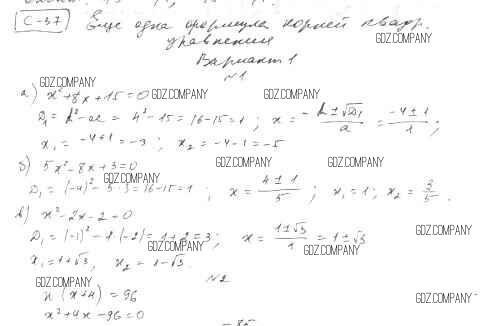 С-37 Еще одна формула корней квадр.
уравнения GDZ.COMPANY
Вариант 1
№1
GDZ.COMPANY
а) x²+8x+15=0 GDZ.COMPANY GDZ.COMPANY
D₁ = k²-ac = 4²-15 = 16-15 = 1; x = (-k±√D₁)/a = (-4±1)/1;
x₁ = -4+1 = -3; x₂ = -4-1 = -5
GDZ.COMPANY GDZ.COMPANY
б) 5x²-8x+3=0
GDZ.COMPANY
D₁ = (-4)²-5·3 = 16-15 = 1; x = (4±1)/5; x₁ = 1; x₂ = 3/5.
GDZ.COMPANY
в) x²-2x-2=0
D₁ = (-1)²-1·(-2) = 1+2 = 3; x = (1±√3)/1 = 1±√3 GDZ.COMPANY
GDZ.COMPANY GDZ.COMPANY
x₁ = 1+√3, x₂ = 1-√3.
№2
GDZ.COMPANY
x(x+4) = 96 GDZ.COMPANY
x²+4x-96=0